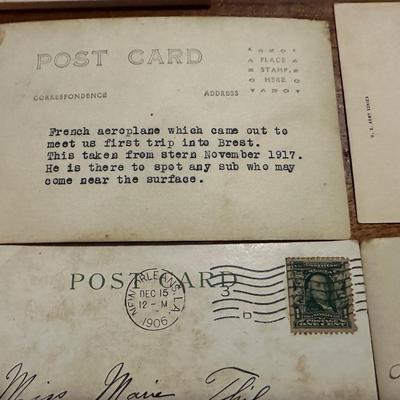 POST CARD
AZOV
PLACE
STAMP
HERE
CORRESPONDENCE
ADDRESS
French aeroplane which came out to
meet us first trip into Brest.
This taken from stern November 1917.
He is there to spot any sub who may
come near the surface.
U. S. ARMY SERIES
POST CARD
NEW ORLEANS, LA.
DEC 15
12-M
1906
3
D
POSTAGE
ONE CENT
Miss Marie